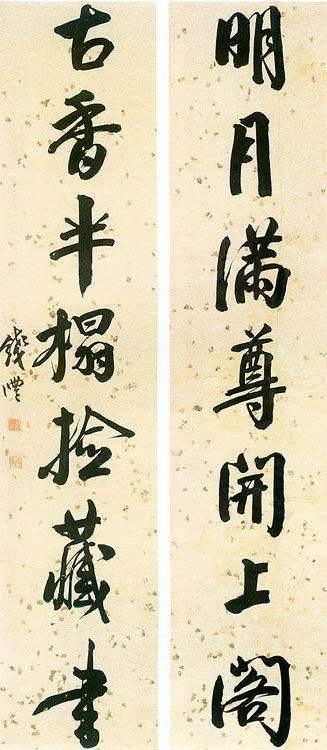 明月满尊開上阁
古香半榻捡藏书
錢灃